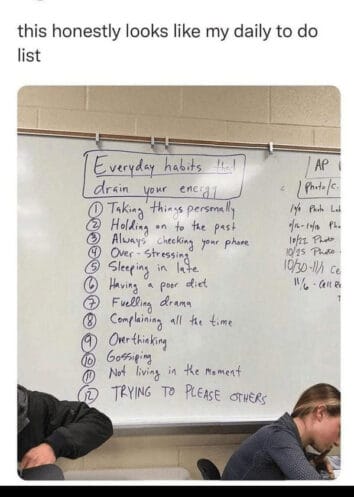 this honestly looks like my daily to do
list
Everyday habits that
drain your energy
① Taking things personally
② Holding on to the past
③ Always checking your phone
④ Over-Stressing
⑤ Sleeping in late
⑥ Having a poor diet
⑦ Fuelling drama
⑧ Complaining all the time
⑨ Overthinking
⑩ Gossiping
⑪ Not living in the moment
⑫ TRYING TO PLEASE OTHERS
AP
Photo/c.
10/22 Photo
10/25 Photo
10/30-11/1 Ce
11/6 - Cell Re